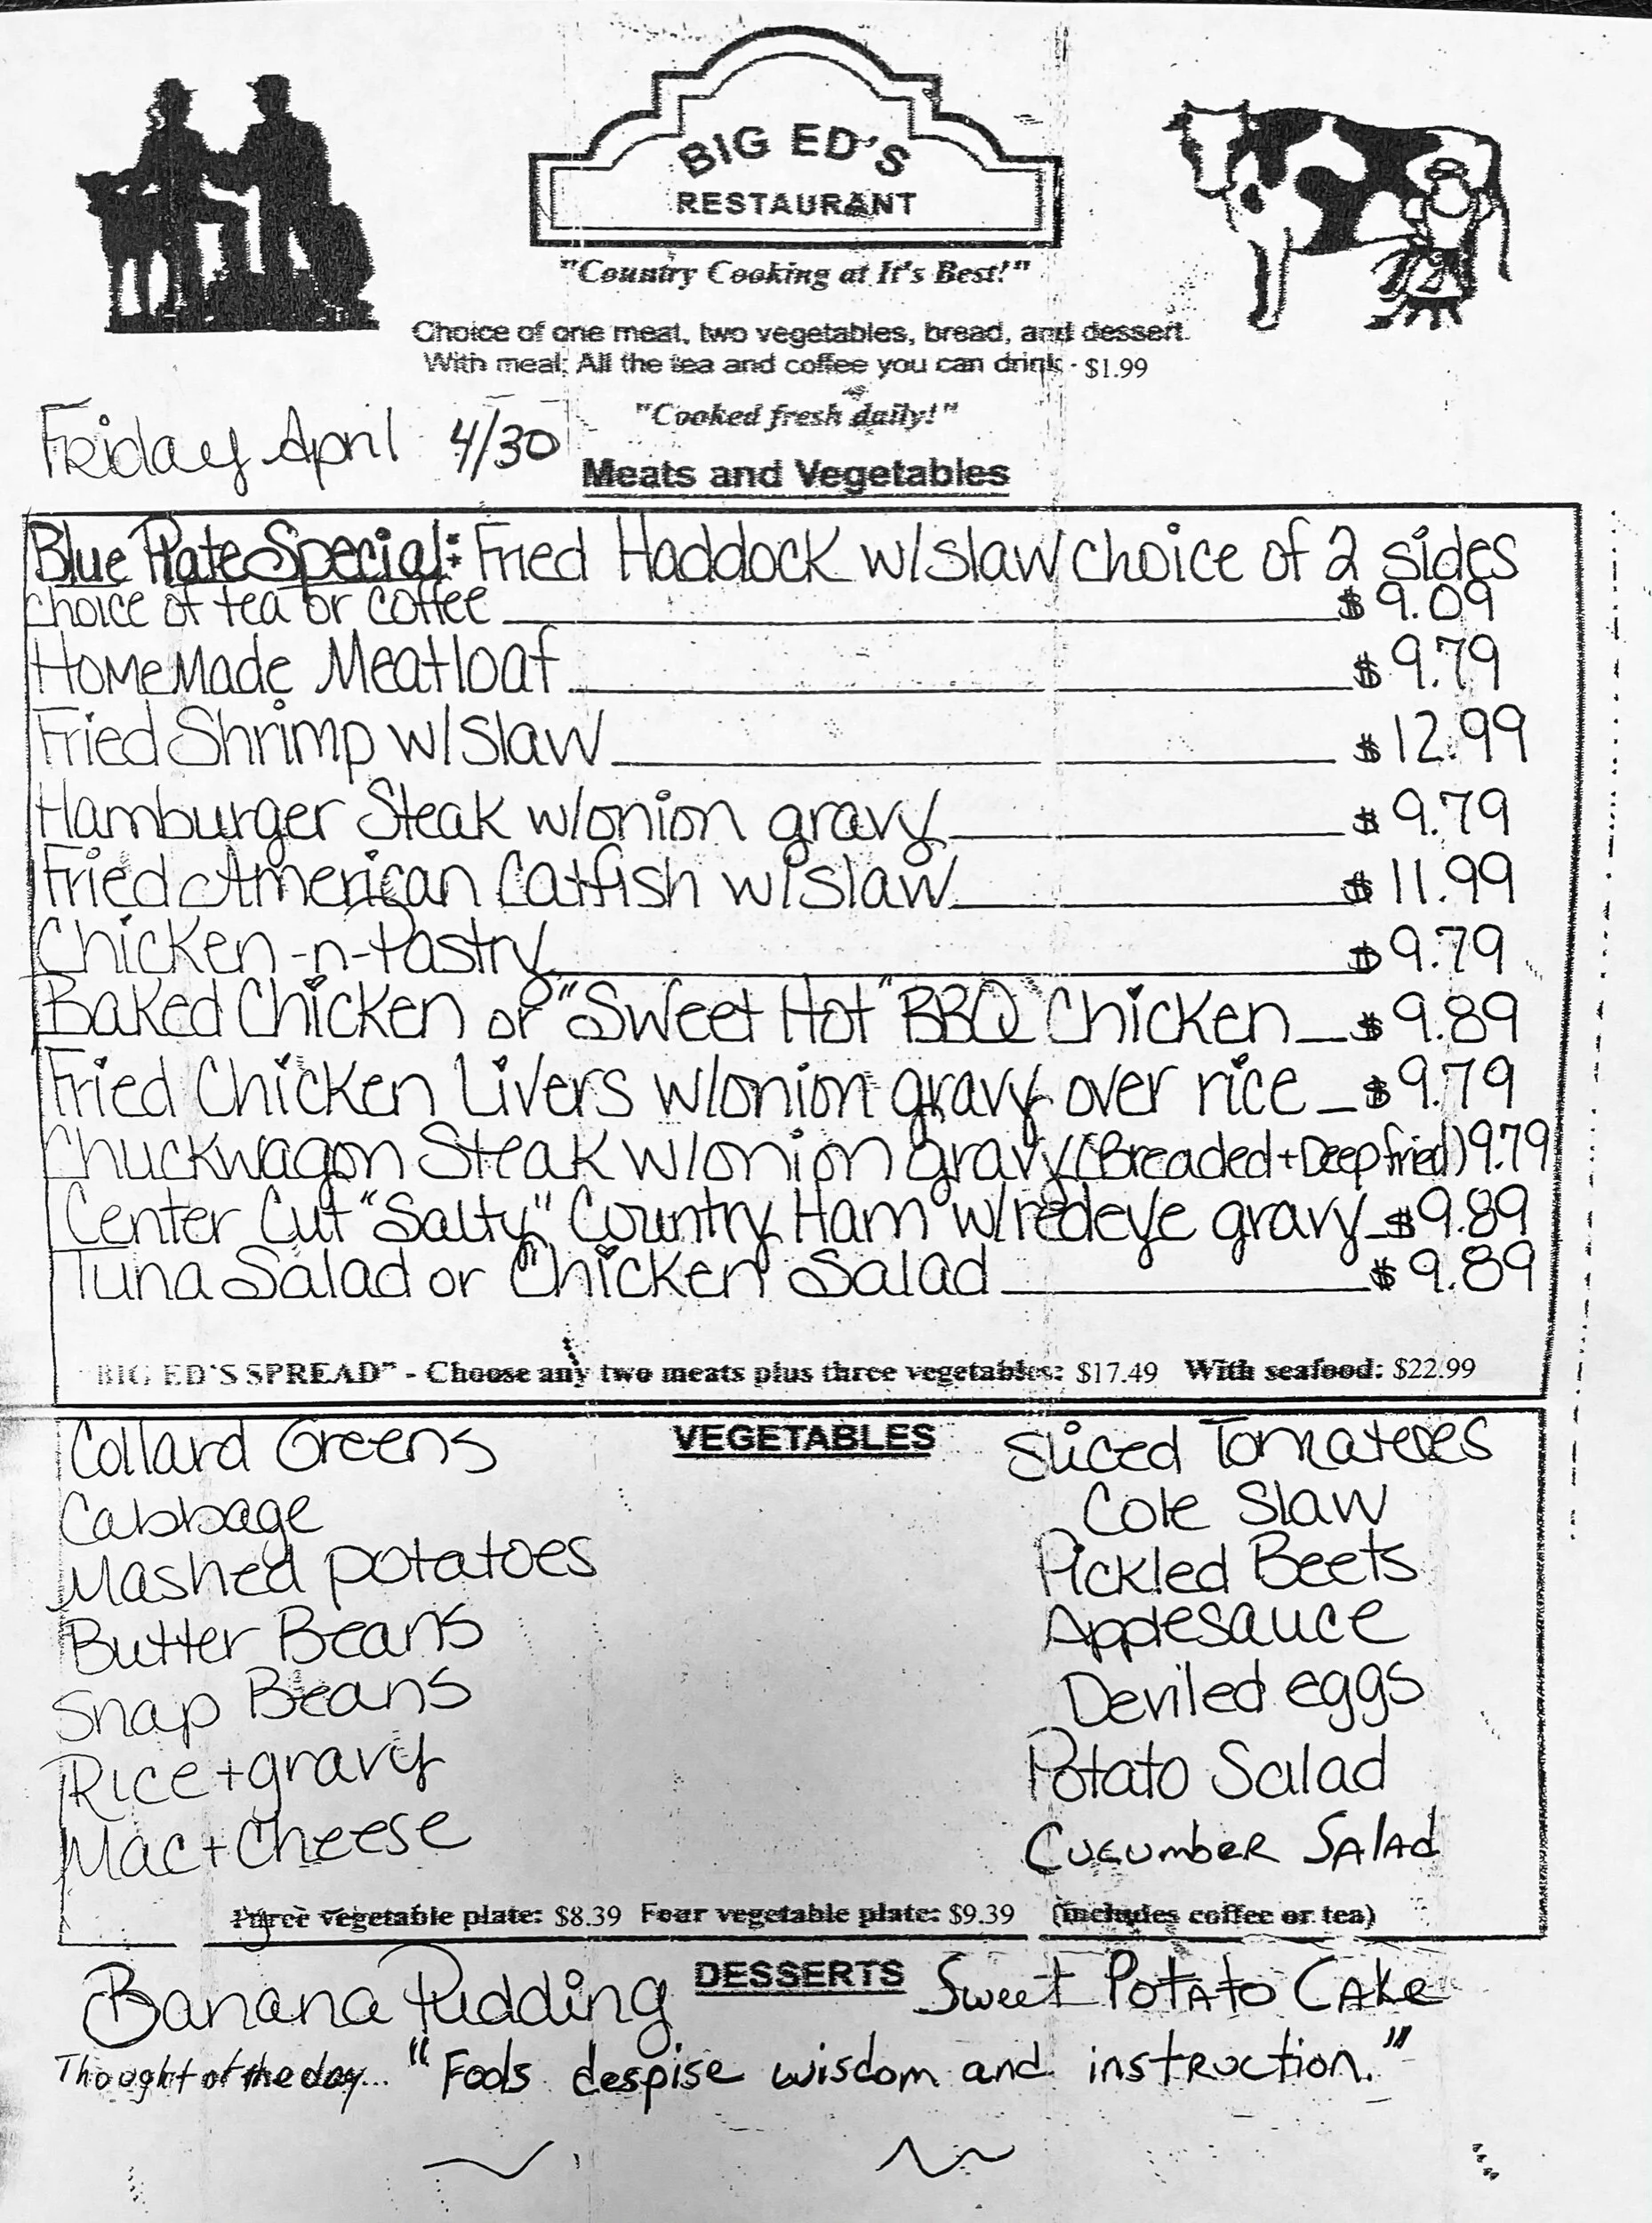 BIG ED'S
RESTAURANT
"Country Cooking at It's Best!"
Choice of one meat, two vegetables, bread, and dessert.
With meal: All the tea and coffee you can drink - $1.99
"Cooked fresh daily!"
Friday April 4/30
Meats and Vegetables
Blue Plate Special: Fried Haddock w/slaw choice of 2 sides
choice of tea or coffee $9.09
HomeMade Meatloaf $9.79
Fried Shrimp w/slaw $12.99
Hamburger Steak w/onion gravy $9.79
Fried American Catfish w/slaw $11.99
Chicken-n-Pastry $9.79
Baked Chicken or "Sweet Hot" BBQ Chicken $9.89
Fried Chicken Livers w/onion gravy over rice $9.79
Chuckwagon Steak w/onion gravy (Breaded+Deep fried) 9.79
Center Cut "Salty" Country Ham w/redeye gravy $9.89
Tuna Salad or Chicken Salad $9.89
"BIG ED'S SPREAD" - Choose any two meats plus three vegetables: $17.49 With seafood: $22.99
VEGETABLES
Collard Greens
Cabbage
Mashed potatoes
Butter Beans
Snap Beans
Rice+gravy
Mac+Cheese
Sliced Tomatoes
Cole Slaw
Pickled Beets
Applesauce
Deviled eggs
Potato Salad
Cucumber Salad
Three vegetable plate: $8.39 Four vegetable plate: $9.39 (includes coffee or tea)
DESSERTS
Banana Pudding
Sweet Potato Cake
Thought of the day... "Fools despise wisdom and instruction."